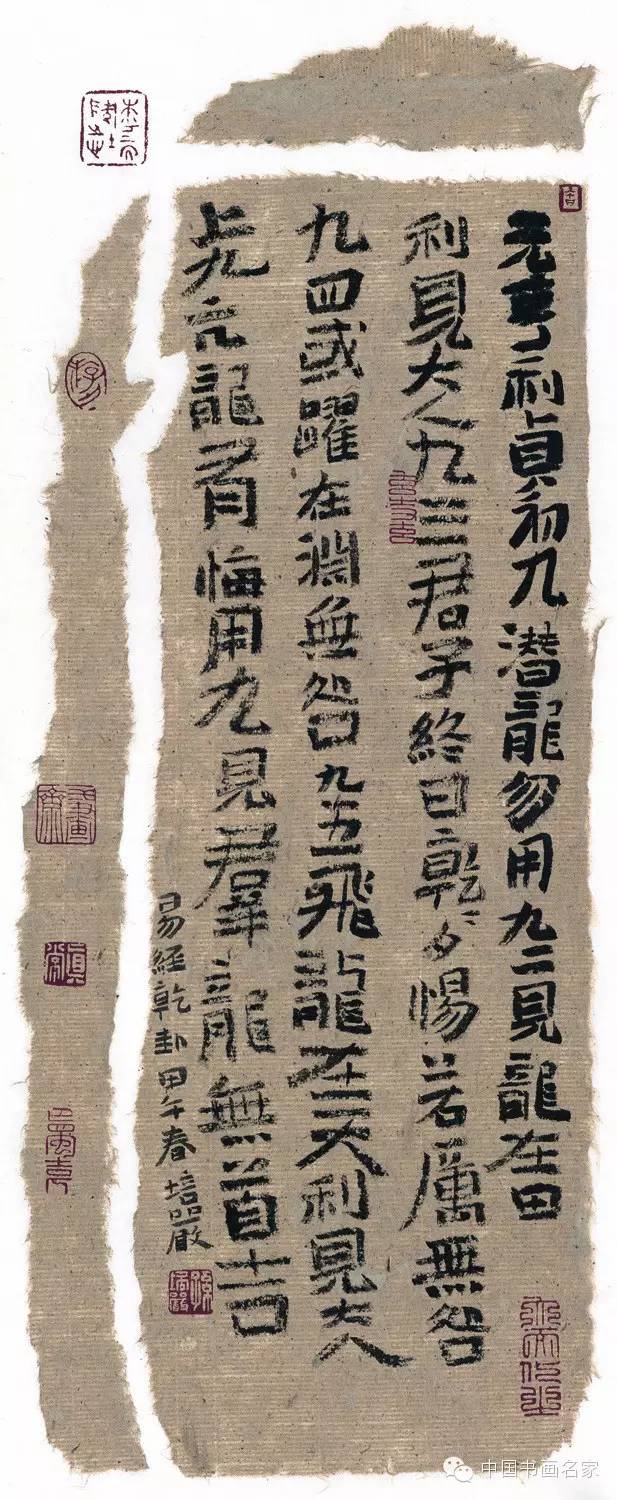 元亨利貞初九潛龍勿用九二見龍在田
利見大人九三君子終日乾〻夕惕若厲無咎
九四或躍在淵無咎九五飛龍在天利見大人
上九亢龍有悔用九見群龍無首吉
易經乾卦甲午春培嚴
中国书画名家